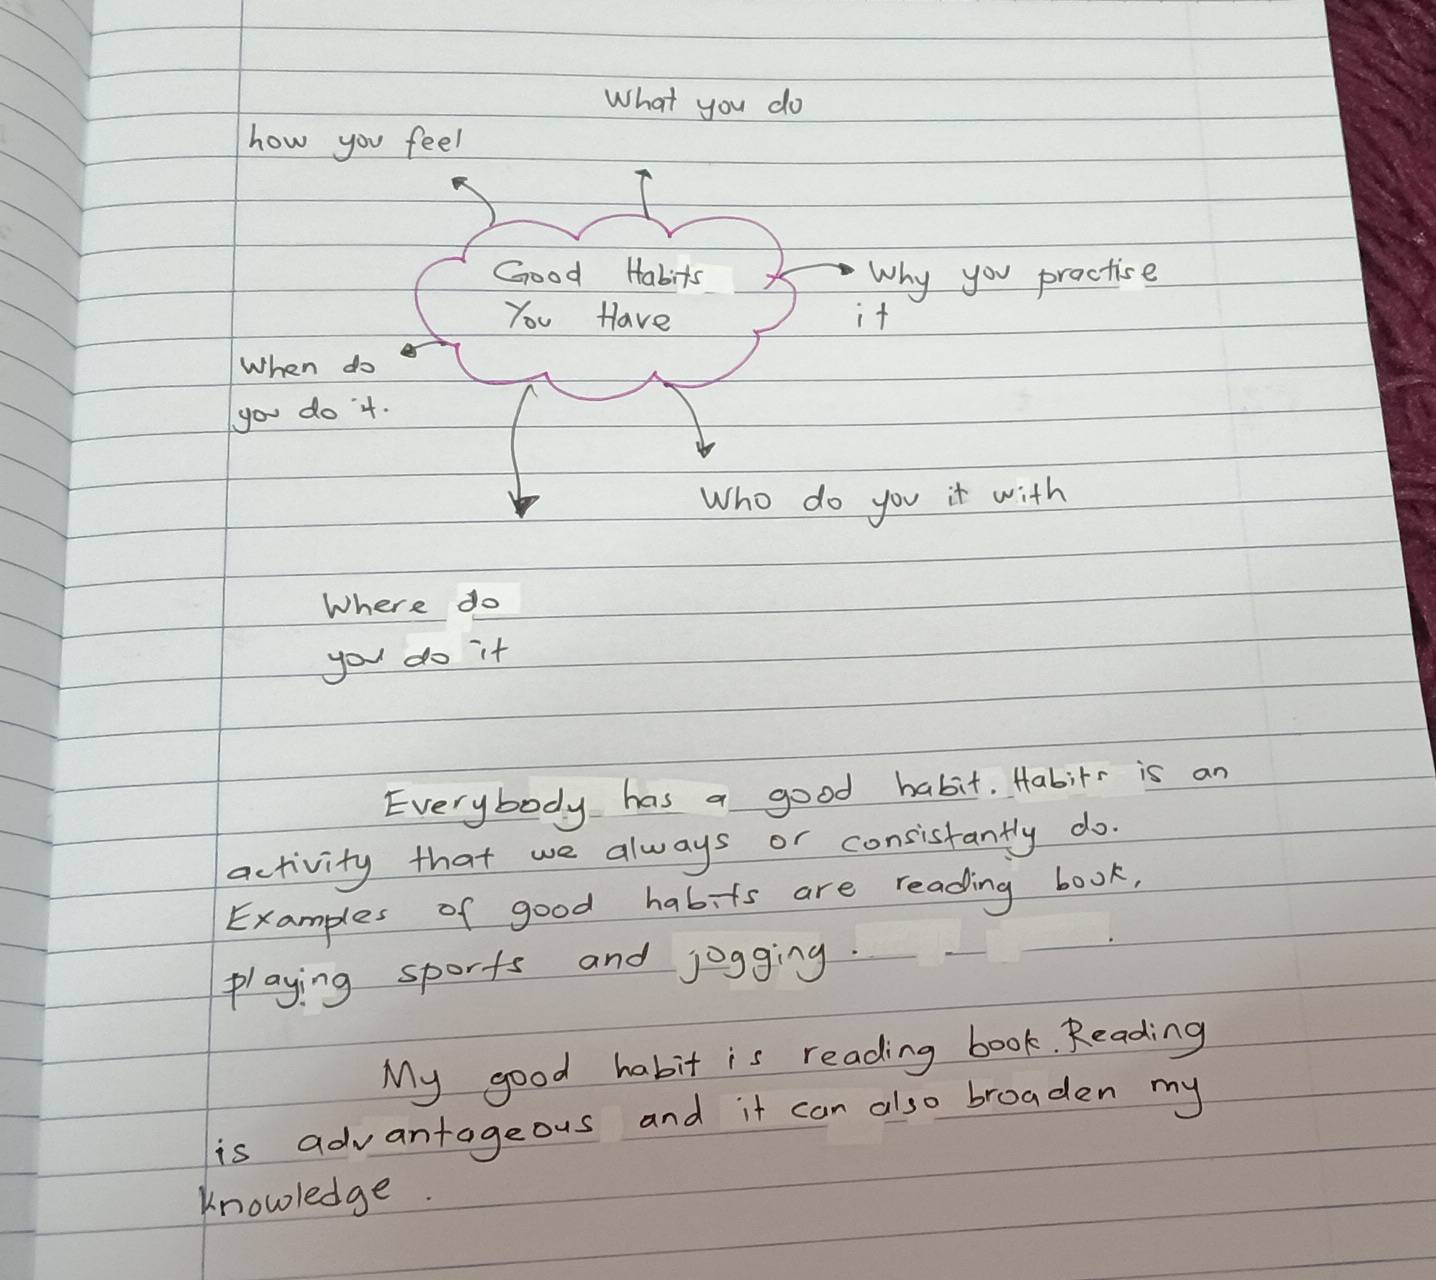 What you do
how you feel
Good Habits
You Have
Why you practise
it
When do
you do it.
Who do you it with
Where do
you do it
Everybody has a good habit. Habits is an
activity that we always or consistantly do.
Examples of good habits are reading book,
playing sports and jogging.
My good habit is reading book. Reading
is advantageous and it can also broaden my
knowledge.